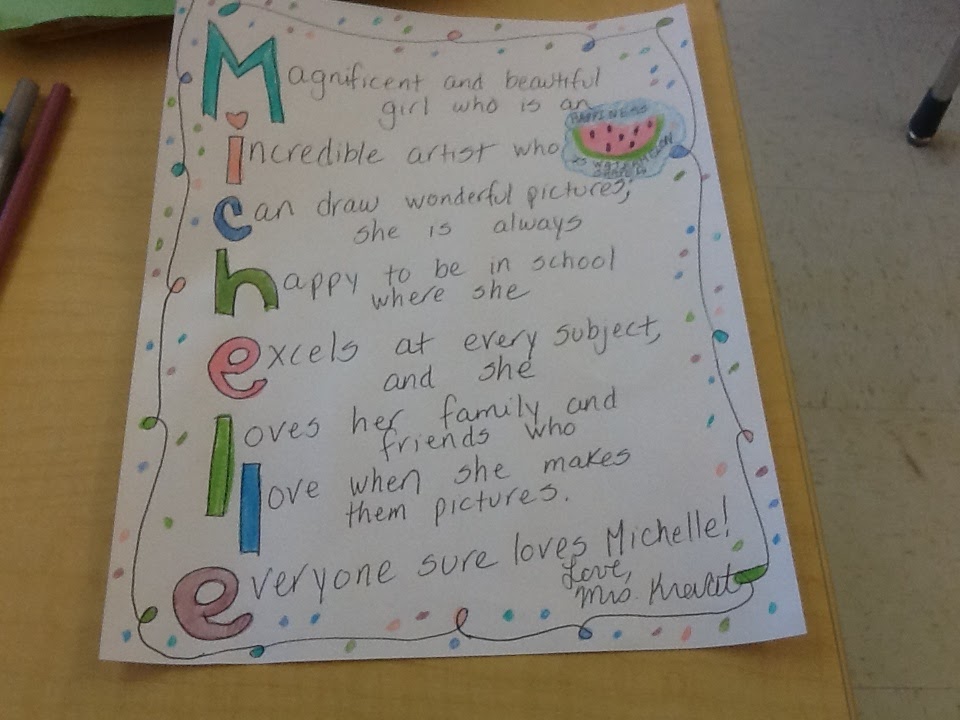 Magnificent and beautiful
girl who is an
HAPPINESS
IS WATERMELON
SHAPED
incredible artist who
can draw wonderful pictures;
she is always
happy to be in school
where she
excels at every subject,
and she
loves her family and
friends who
love when she makes
them pictures.
everyone sure loves Michelle!
Love,
Mrs.